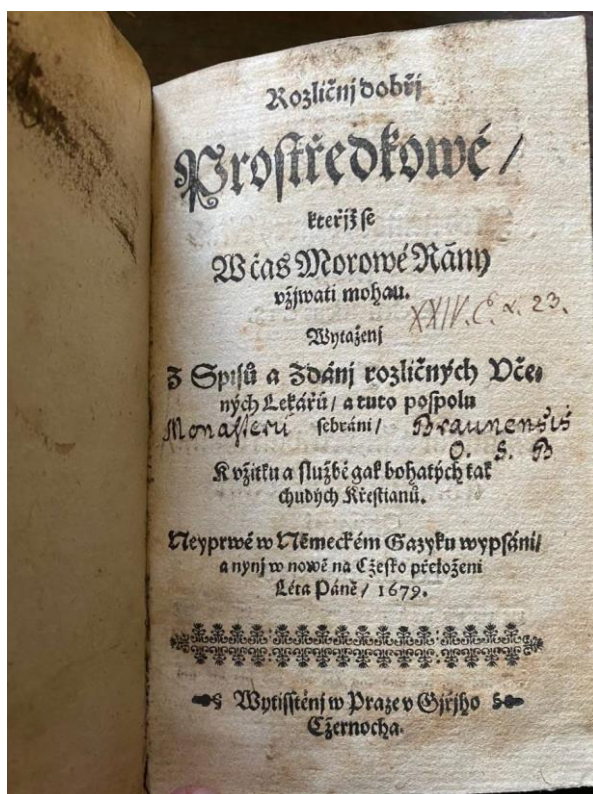 Rozličnj dobřj
Prostředkowé /
kteřjž se
W čas Morowé Rány
vžjwati mohau.
XXIV. C. α. 23.
Wytaženj
Z Spisů a Zdánj rozličných Vče-
ných Lekářů / a tuto pospolu
Monasterii sebráni / Braunensis
O. S. B
K vžitku a službě gak bohatých tak
chudých Křestianů.
Neyprwé w Německém Gazyku wypsáni /
a nynj w nowě na Cžesko přeloženi
Léta Páně / 1679.
Wytisstěnj w Praze v Giřjho
Cžernocha.